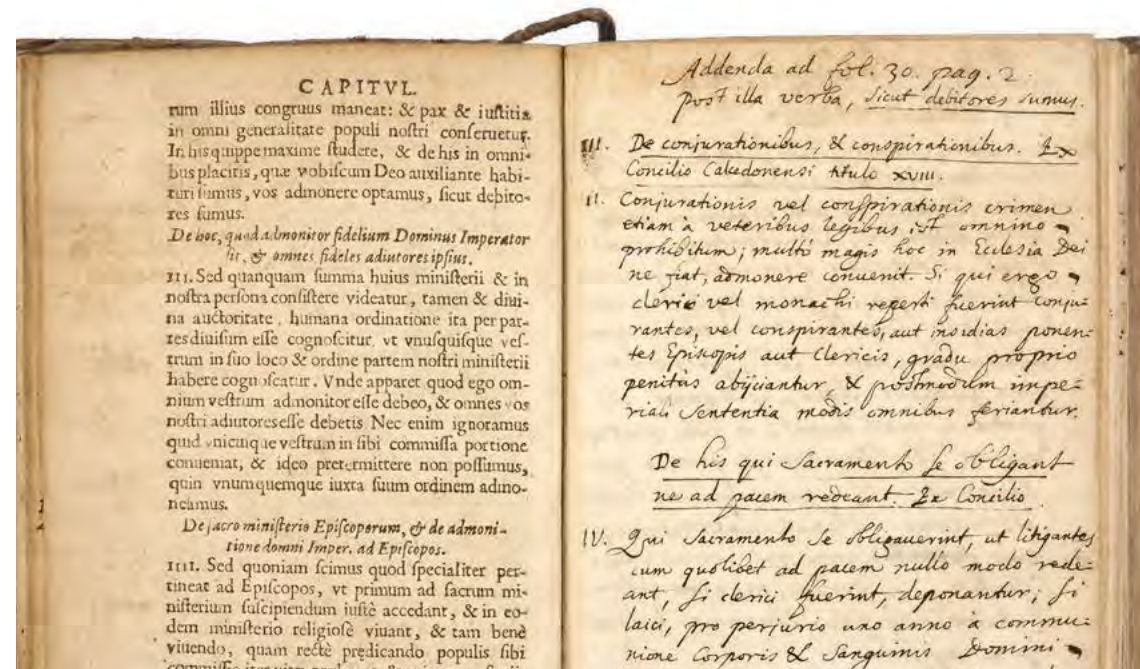 CAPITVL.
rum illius congruus maneat: & pax & iuſtitia
in omni generalitate populi noſtri conſeruetur.
In his quippe maxime ſtudere, & de his in omni-
bus placitis, quæ vobiſcum Deo auxiliante habi-
turi ſumus, vos admonere optamus, ſicut debito-
res ſumus.
De hoc, quod admonitor fidelium Dominus Imperator
ſit, & omnes fideles adiutores ipſius.
III. Sed quanquam ſumma huius miniſterii & in
noſtra perſona conſiſtere videatur, tamen & diui-
na auctoritate, humana ordinatione ita per par-
tes diuiſum eſſe cognoſcitur, vt vnuſquiſque veſ-
trum in ſuo loco & ordine partem noſtri miniſterii
habere cognoſcatur. Vnde apparet quod ego om-
nium veſtrum admonitor eſſe debeo, & omnes vos
noſtri adiutores eſſe debetis. Nec enim ignoramus
quid vnicuique veſtrum in ſibi commiſſa portione
conueniat, & ideo pretermittere non poſſumus,
quin vnumquemque iuxta ſuum ordinem admo-
neamus.
De ſacro miniſterio Epiſcoporum, & de admoni-
tione domni Imper. ad Epiſcopos.
IIII. Sed quoniam ſcimus quod ſpecialiter per-
tineat ad Epiſcopos, vt primum ad ſacrum mi-
niſterium ſuſcipiendum iuſtè accedant, & in eo-
dem miniſterio religioſè viuant, & tam benè
viuendo, quam rectè prędicando populis ſibi
Addenda ad fol. 30. pag. 2.
post illa verba, sicut debitores sumus.
III. De conjurationibus, & conspirationibus. Ex
Concilio Calcedonensi titulo XVIII.
II. Conjurationis vel conſpirationis crimen
etiam à veteribus legibus eſt omnino
prohibitum; multò magis hoc in Ecclesia Dei
ne fiat, admonere convenit. Si qui ergo
clerici vel monachi reperti fuerint conju-
rantes, vel conspirantes, aut insidias ponen-
tes Episcopis aut Clericis, gradu proprio
penitùs abijciantur, & postmodum impe-
riali Sententia modis omnibus feriantur.
De his qui Sacramento se obligant
ne ad pacem redeant. Ex Concilio
IV. Qui Sacramento se obligauerint, ut litigantes
cum quolibet ad pacem nullo modo rede-
ant, si clerici fuerint, deponantur; si
laici, pro perjurio uno anno à commu-
nione Corporis & Sanguinis Domini